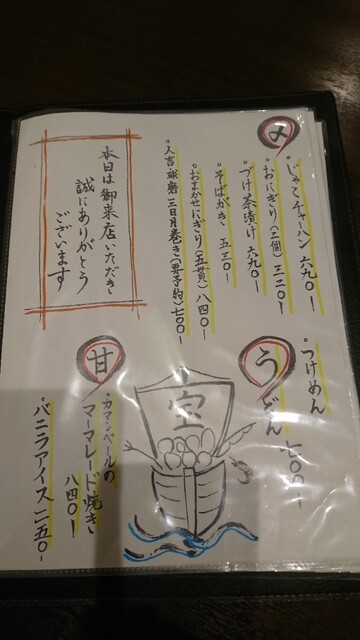 〆
・じゃこチャーハン 六九〇ー
・おにぎり(二個) 三二〇ー
・づけ茶漬け 六九〇ー
・そばがき 五三〇ー
・おまかせにぎり(五貫)八四〇ー
・人吉・球磨 三日月巻き(
)七〇〇ー
本日は御来店いただき
誠にありがとう
ございます
う
・つけめん
どん 七〇〇ー
宝
甘
・カマンベールの
マーマレード焼き
八四〇ー
・バニラアイス 二五〇ー